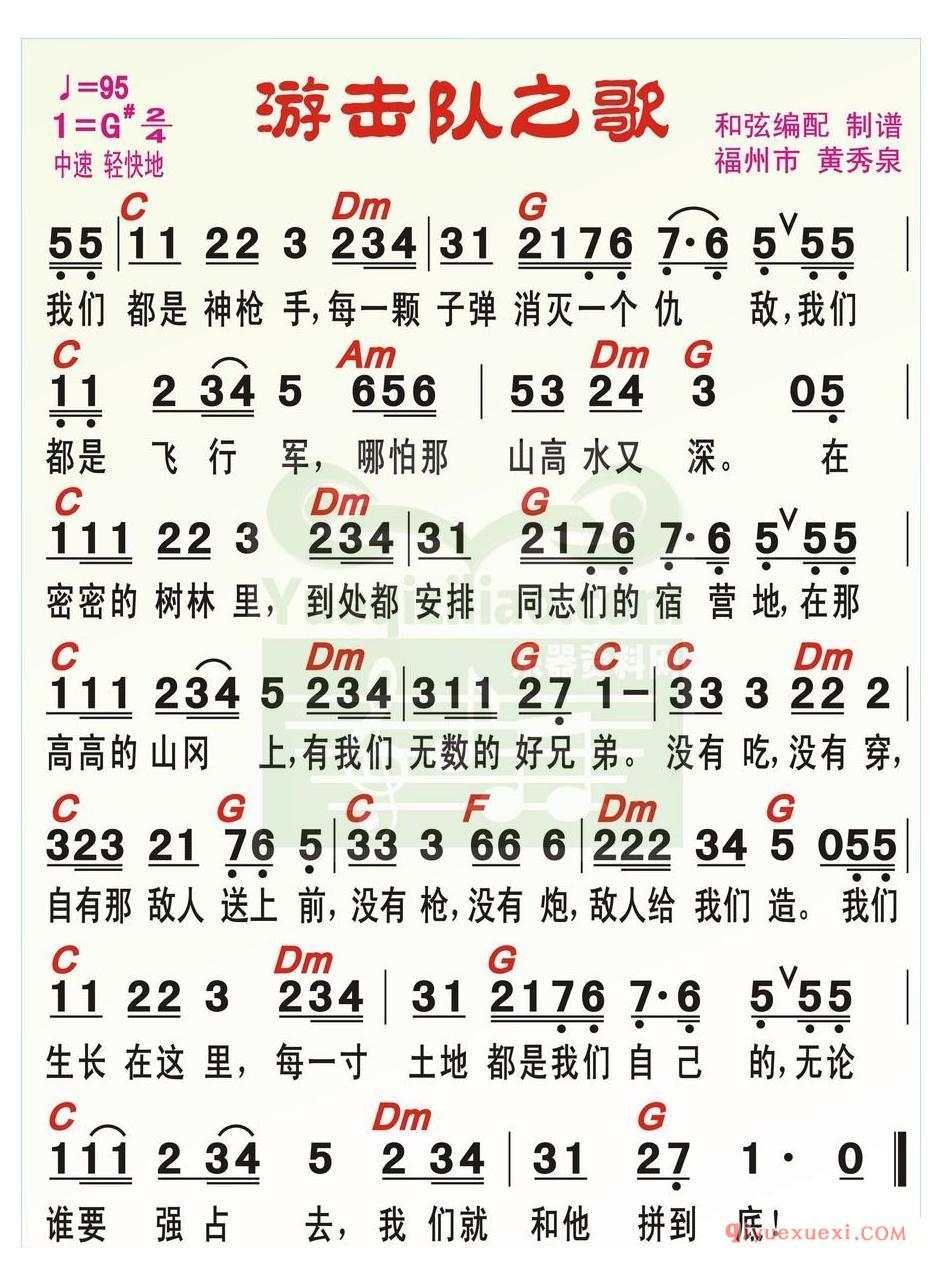 ♩=95
游击队之歌
1=G# 2/4
中速 轻快地
和弦编配 制谱
福州市 黄秀泉
C Dm G
55 | 11 22 3 234 | 31 2176 7·6 5 V 55 |
我们 都是 神枪 手, 每一颗 子弹 消灭一个 仇 敌, 我们
C Am Dm G
11 2 34 5 656 | 53 24 3 05 |
都是 飞 行 军, 哪怕那 山高 水又 深。 在
C Dm G
111 22 3 234 | 31 2176 7·6 5 V 55
密密的 树林 里, 到处都 安排 同志们的 宿 营 地, 在那
C Dm G C C Dm
111 234 5 234 | 311 27 1– | 33 3 22 2 |
高高的 山冈 上, 有我们 无数的 好兄 弟。 没有 吃, 没有 穿,
C G C F Dm G
323 21 76 5 | 33 3 66 6 | 222 34 5 055 |
自有那 敌人 送上 前, 没有 枪, 没有 炮, 敌人给 我们 造。 我们
C Dm G
11 22 3 234 | 31 2176 7·6 5 V 55 |
生长 在这 里, 每一寸 土地 都是我们 自 己 的, 无论
C Dm G
111 2 34 5 2 34 | 31 27 1 · 0 ‖
谁要 强 占 去, 我 们就 和他 拼到 底!